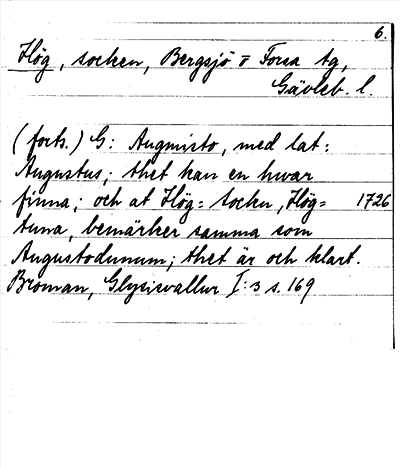 6.
Hög, socken, Bergsjö o Forsa tg,
Gävleb. l.
(forts.) G: Augmisto, med lat:
Augustus; thet kan en hwar
finna; och at Hög= socken, Hög= 1726
tuna, bemärker samma som
Augustodunum; thet är och klart.
Broman, Glysisvallur I:3 s. 169